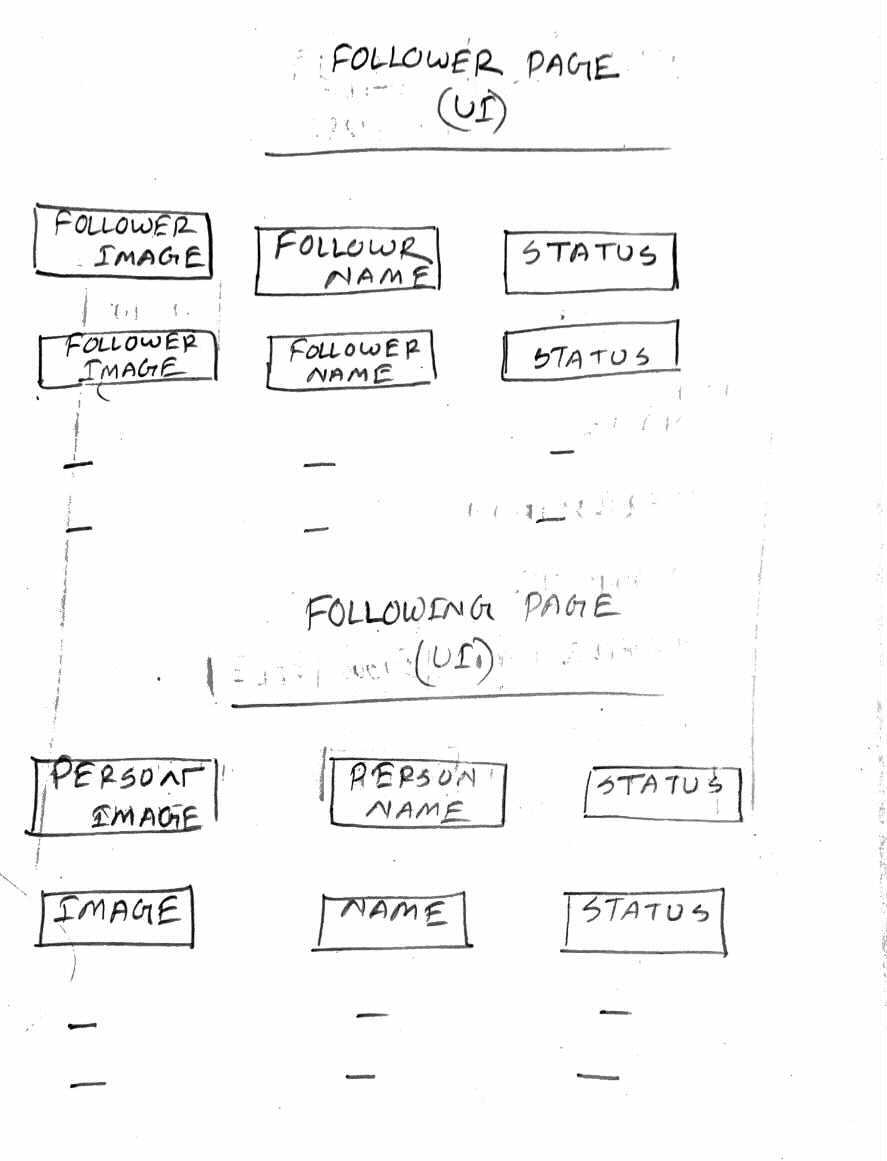 FOLLOWER PAGE
(UI)
FOLLOWER IMAGE
FOLLOWR NAME
STATUS
FOLLOWER IMAGE
FOLLOWER NAME
STATUS
— — —
— — —
FOLLOWING PAGE
(UI)
PERSON IMAGE
PERSON NAME
STATUS
IMAGE
NAME
STATUS
— — —
— — —